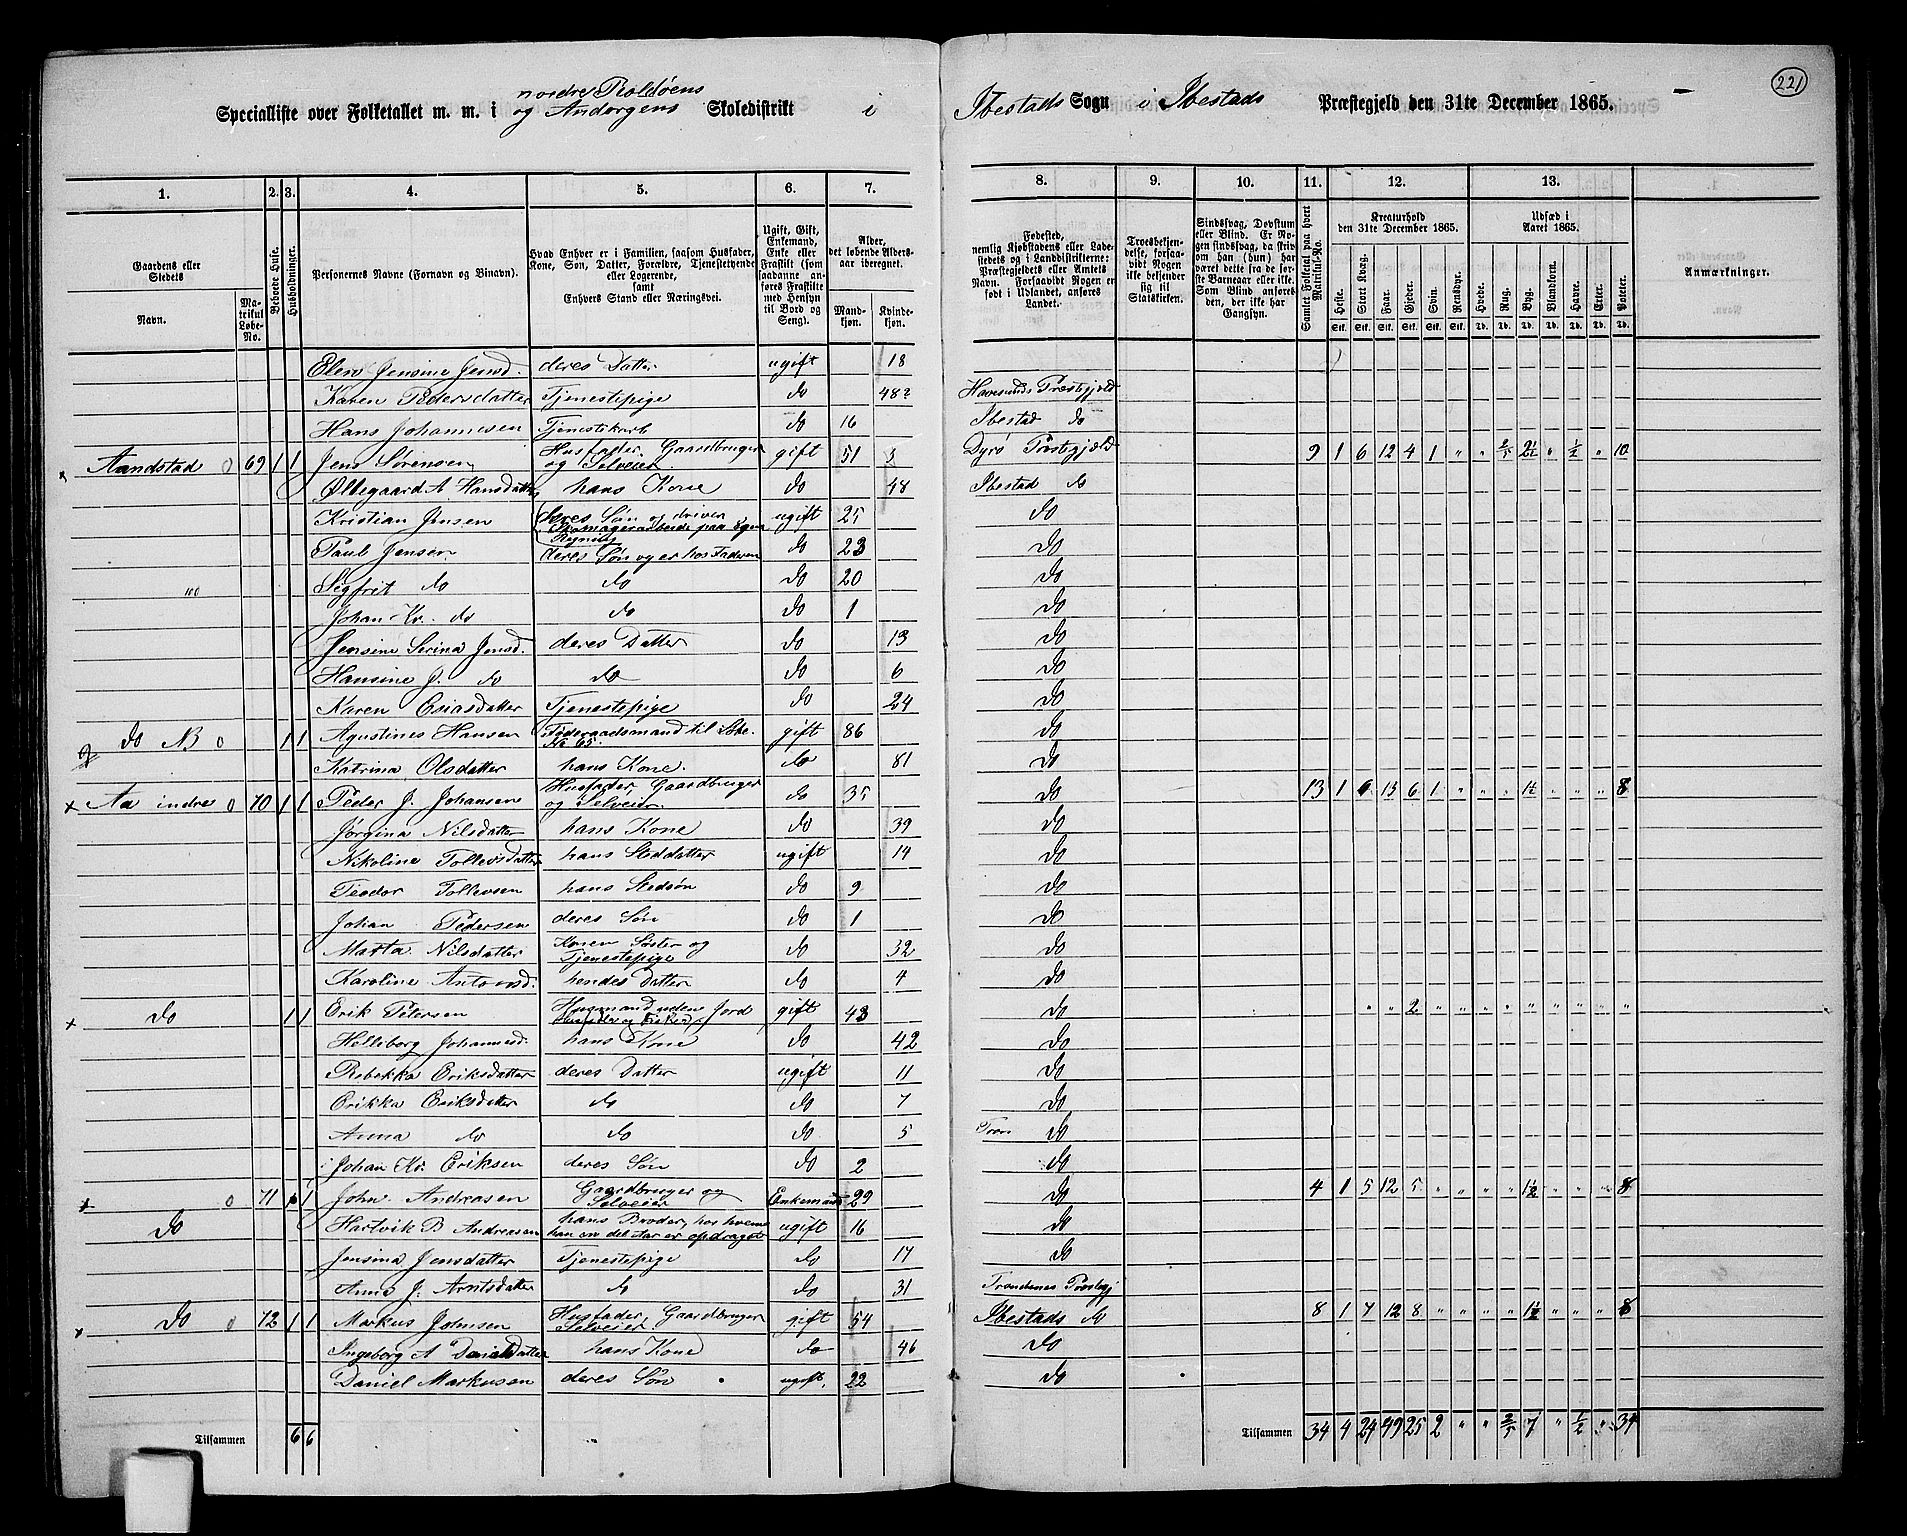 221
nordre Roldøens
Specialliste over Folketallet m. m. i og Andorgens Skoledistrikt i Ibestads Sogn i Ibestads Præstegjeld den 31te December 1865.
1. 2. 3. 4. 5. 6. 7. 8. 9. 10. 11. 12. 13.
Gaardens eller Stedets
Navn.
Matrikul Løbe-No.
Beboede Huse.
Husholdninger.
Personernes Navne (Fornavn og Binavn).
Hvad Enhver er i Familien, saasom Husfader, Kone, Søn, Datter, Forældre, Tjenestetyende eller Logerende, samt Enhvers Stand eller Næringsvei.
Ugift, Gift, Enkemand, Enke eller Fraskilt (som saadanne anføres Fraskilte med Hensyn til Bord og Seng).
Alder, det løbende Aldersaar iberegnet.
Mandkjøn. Kvindekjøn.
Fødested, nemlig Kjøbstadens eller Ladestedets og i Landdistrikterne: Præstegjeldets eller Amtets Navn. Forsaavidt Nogen er født i Udlandet, anføres Landet.
Troesbekjendelse, forsaavidt Nogen ikke bekjender sig til Statskirken.
Sindssvag, Døvstum eller Blind. Er Nogen sindssvag, da skrives om han (hun) har været dette fra de første Barneaar eller ikke. Som Blind anføres den, der ikke har Gangsyn.
Samlet Folketal paa hvert Matrikul-No.
Kreaturhold den 31te December 1865.
Heste. Stort Kvæg. Faar. Gjeder. Svin. Rensdyr.
Udsæd i Aaret 1865.
Hvede. Rug. Byg. Blandkorn. Havre. Erter. Poteter.
Anmærkninger.
Elen Jensine Jensd. deres Datter ugift 18
Karen Pedersdatter Tjenestepige do 48? Præstgjeld
Hans Johannesen Tjenestekarl do 16 Ibestad do
Aandstad 69 1 1 Jens Sørensen Husfader, Gaardbruger og Selveier gift 51 Dyrø Præstgjeld 9 1 6 12 4 1 " " 2/5 2½ " ½ " 10
Øllegaard A Hansdatter hans Kone do 48 Ibestad do
Kristian Jensen deres Søn og driver Skomagerarbeide paa egen Regning ugift 25 do
Paul Jensen deres Søn og er hos Faderen do 23 do
Sigfrit do do do 20 do
Johan Kr. do do do 1 do
Jensine Serina Jensd. deres Datter do 13 do
Hansine J. do do do 6 do
Karen Esiasdatter Tjenestepige do 24 do
do N3 1 1 Agustines Hansen Føderaadsmand til Løbe-No 65. gift 86 do
Katrina Olsdatter hans Kone. do 81 do
Aa indre 70 1 1 Peder J. Johansen Husfader, Gaardbruger og Selveier do 35 do 13 1 6 15 6 1 " " " 1½ " " " 8
Jørgina Nilsdatter hans Kone do 39 do
Nikoline Tollevsdatter hans Steddatter ugift 14 do
Teodor Tollevsen hans Stedsøn do 9 do
Johan Pedersen deres Søn do 1 do
Marta Nilsdatter Konen Søster og Tjenestepige do 32 do
Karoline Antonsd. hendes Datter do 4 do
do 1 1 Erik Petersen Huusmand uden Jord gift 43 do " " 2 " " " " " " " " "
Helleborg Johannesd. hans Kone do 42 do
Rebekka Eriksdatter deres Datter ugift 11 do
Erikka Eriksdatter do do 7 do
Anna do do do 5 do
Johan Kr. Eriksen deres Søn do 2 do
71 1 John Andreasen Gaardbruger og Selveier Enkemand 29 do 4 1 5 12 5 " " " " 1½ " " " 8
do Hartvik B Andreasen hans Broder, hos hvem han en del Aar er opdraget ugift 16 do
Jensina Jensdatter Tjenestepige do 17 do
Anne J. Arntsdatter do do 31 Trondenes Præstgj
do 72 1 1 Markus Johnsen Husfader, Gaardbruger Selveier gift 54 Ibestads do 8 1 7 12 8 " " " " 1½ " " " 8
Ingeborg A Danielsdatter hans Kone do 46 do
Daniel Markusen deres Søn ugift 22 do
Tilsammen 6 6
Tilsammen 34 4 24 49 25 2 " " 2/5 7 " ½ " 34